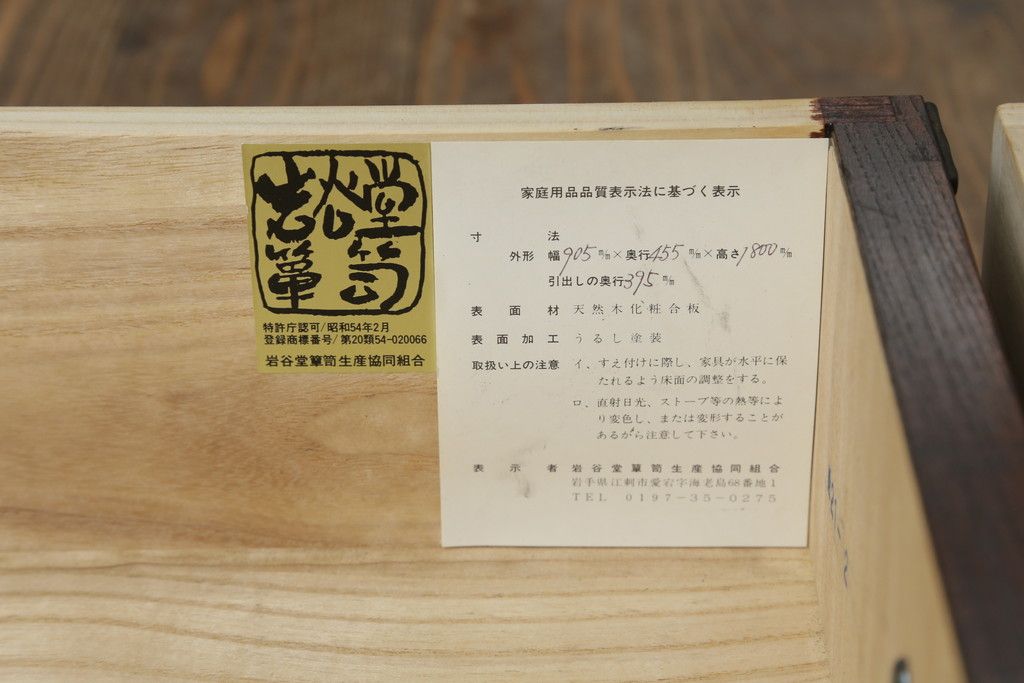 岩谷堂簞笥
特許庁認可/昭和54年2月
登録商標番号/第20類54-020066
岩谷堂簞笥生産協同組合
家庭用品品質表示法に基づく表示
寸法
外形 幅905m/m×奥行455m/m×高さ1800m/m
引出しの奥行395m/m
表面材 天然木化粧合板
表面加工 うるし塗装
取扱い上の注意 イ、すえ付けに際し、家具が水平に保
たれるよう床面の調整をする。
ロ、直射日光、ストーブ等の熱等によ
り変色し、または変形することが
あるから注意して下さい。
表示者 岩谷堂簞笥生産協同組合
岩手県江刺市愛宕字海老島68番地1
TEL 0197-35-0275